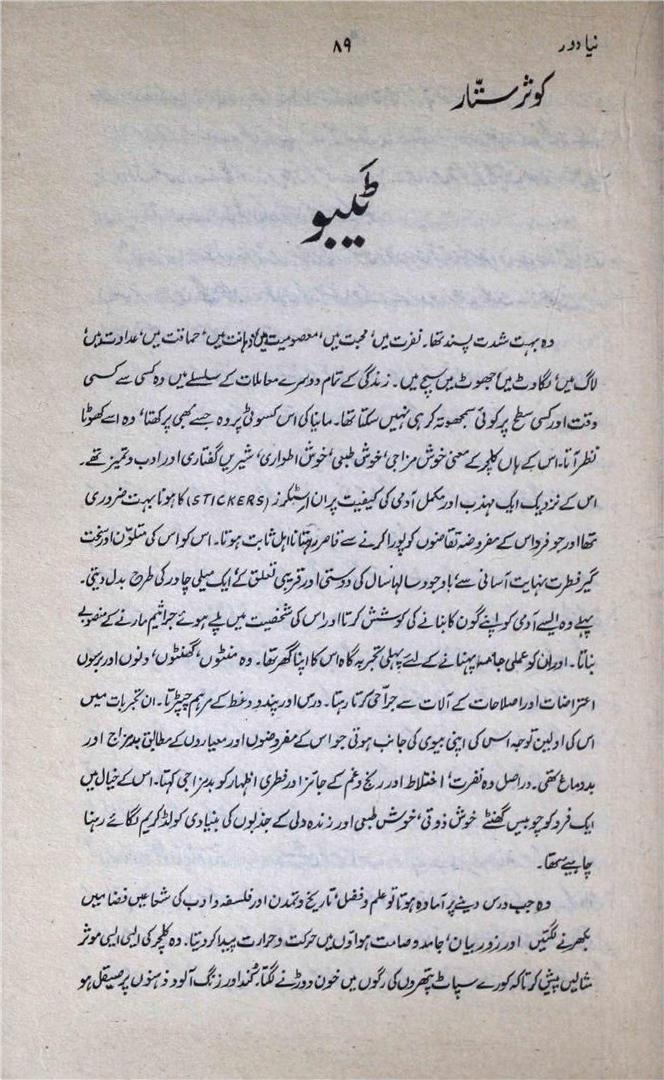 نیا دور
۸۹
کوثر ستّار
ٹَیبو
وہ بہت شدت پسند تھا۔ نفرت میں، محبت میں، معصومیت میں، ذہانت میں، حماقت میں، عداوت میں،
لاگ میں، لگاوٹ میں، جھوٹ میں سچ میں۔ زندگی کے تمام دوسرے معاملات کے سلسلے میں وہ کسی سے کسی
وقت اور کسی سطح پر کوئی سمجھوتہ کر ہی نہیں سکتا تھا۔ مانیا کی اس کسوٹی پر وہ جسے بھی پرکھتا، وہ اسے کھوٹا
نظر آتا۔ اس کے ہاں کلچر کے معنی خوش مزاجی، خوش طبعی، خوش اطواری، شیریں گفتاری اور ادب و تمیز تھے۔
اس کے نزدیک ایک مہذب اور مکمل آدمی کی کیفیت پر ان اسٹیکرز (STICKERS) کا ہونا بہت ضروری
تھا اور جو فرد اس کے مفروضہ تقاضوں کو پورا کرنے سے قاصر رہتا نااہل ثابت ہوتا۔ اس کو اس کی متلوّن اور سخت
گیر فطرت نہایت آسانی سے، باوجود سالہا سال کی دوستی اور قریبی تعلق کے، ایک میلی چادر کی طرح بدل دیتی۔
پہلے وہ ایسے آدمی کو اپنے گون کا بنانے کی کوشش کرتا اور اس کی شخصیت میں پلے ہوئے جراثیم مارنے کے منصوبے
بناتا۔ اور ان کو عملی جامہ پہنانے کے لئے پہلی تجربہ گاہ اس کا اپنا گھر تھا۔ وہ منٹوں، گھنٹوں، دنوں اور برسوں
اعتراضات اور اصلاحات کے آلات سے جراحی کرتا رہتا۔ درس اور پند و وعظ کے مرہم چپڑتا۔ ان تجربات میں
اس کی اولین توجہ اس کی اپنی بیوی کی جانب ہوتی جو اس کے مفروضوں اور معیاروں کے مطابق بدمزاج اور
بددماغ تھی۔ دراصل وہ نفرت، اختلاط اور رنج و غم کے جائز اور فطری اظہار کو بدمزاجی کہتا۔ اس کے خیال میں
ایک فرد کو چوبیس گھنٹے خوش ذوقی، خوش طبعی اور زندہ دلی کے جذبوں کی بنیادی کولڈ کریم لگائے رہنا
چاہیئے تھا۔
وہ جب درس دینے پر آمادہ ہوتا تو علم و فضل، تاریخ و تمدن اور فلسفہ و ادب کی شعاعیں فضا میں
بکھرنے لگتیں اور زور بیان، جامد و صامت ہواؤں میں حرکت و حرارت پیدا کر دیتا۔ وہ کلچر کی ایسی ایسی موثر
مثالیں پیش کرتا کہ کورے سپاٹ پتھروں کی رگوں میں خون دوڑنے لگتا، کُند اور زنگ آلود ذہنوں پر صیقل ہو